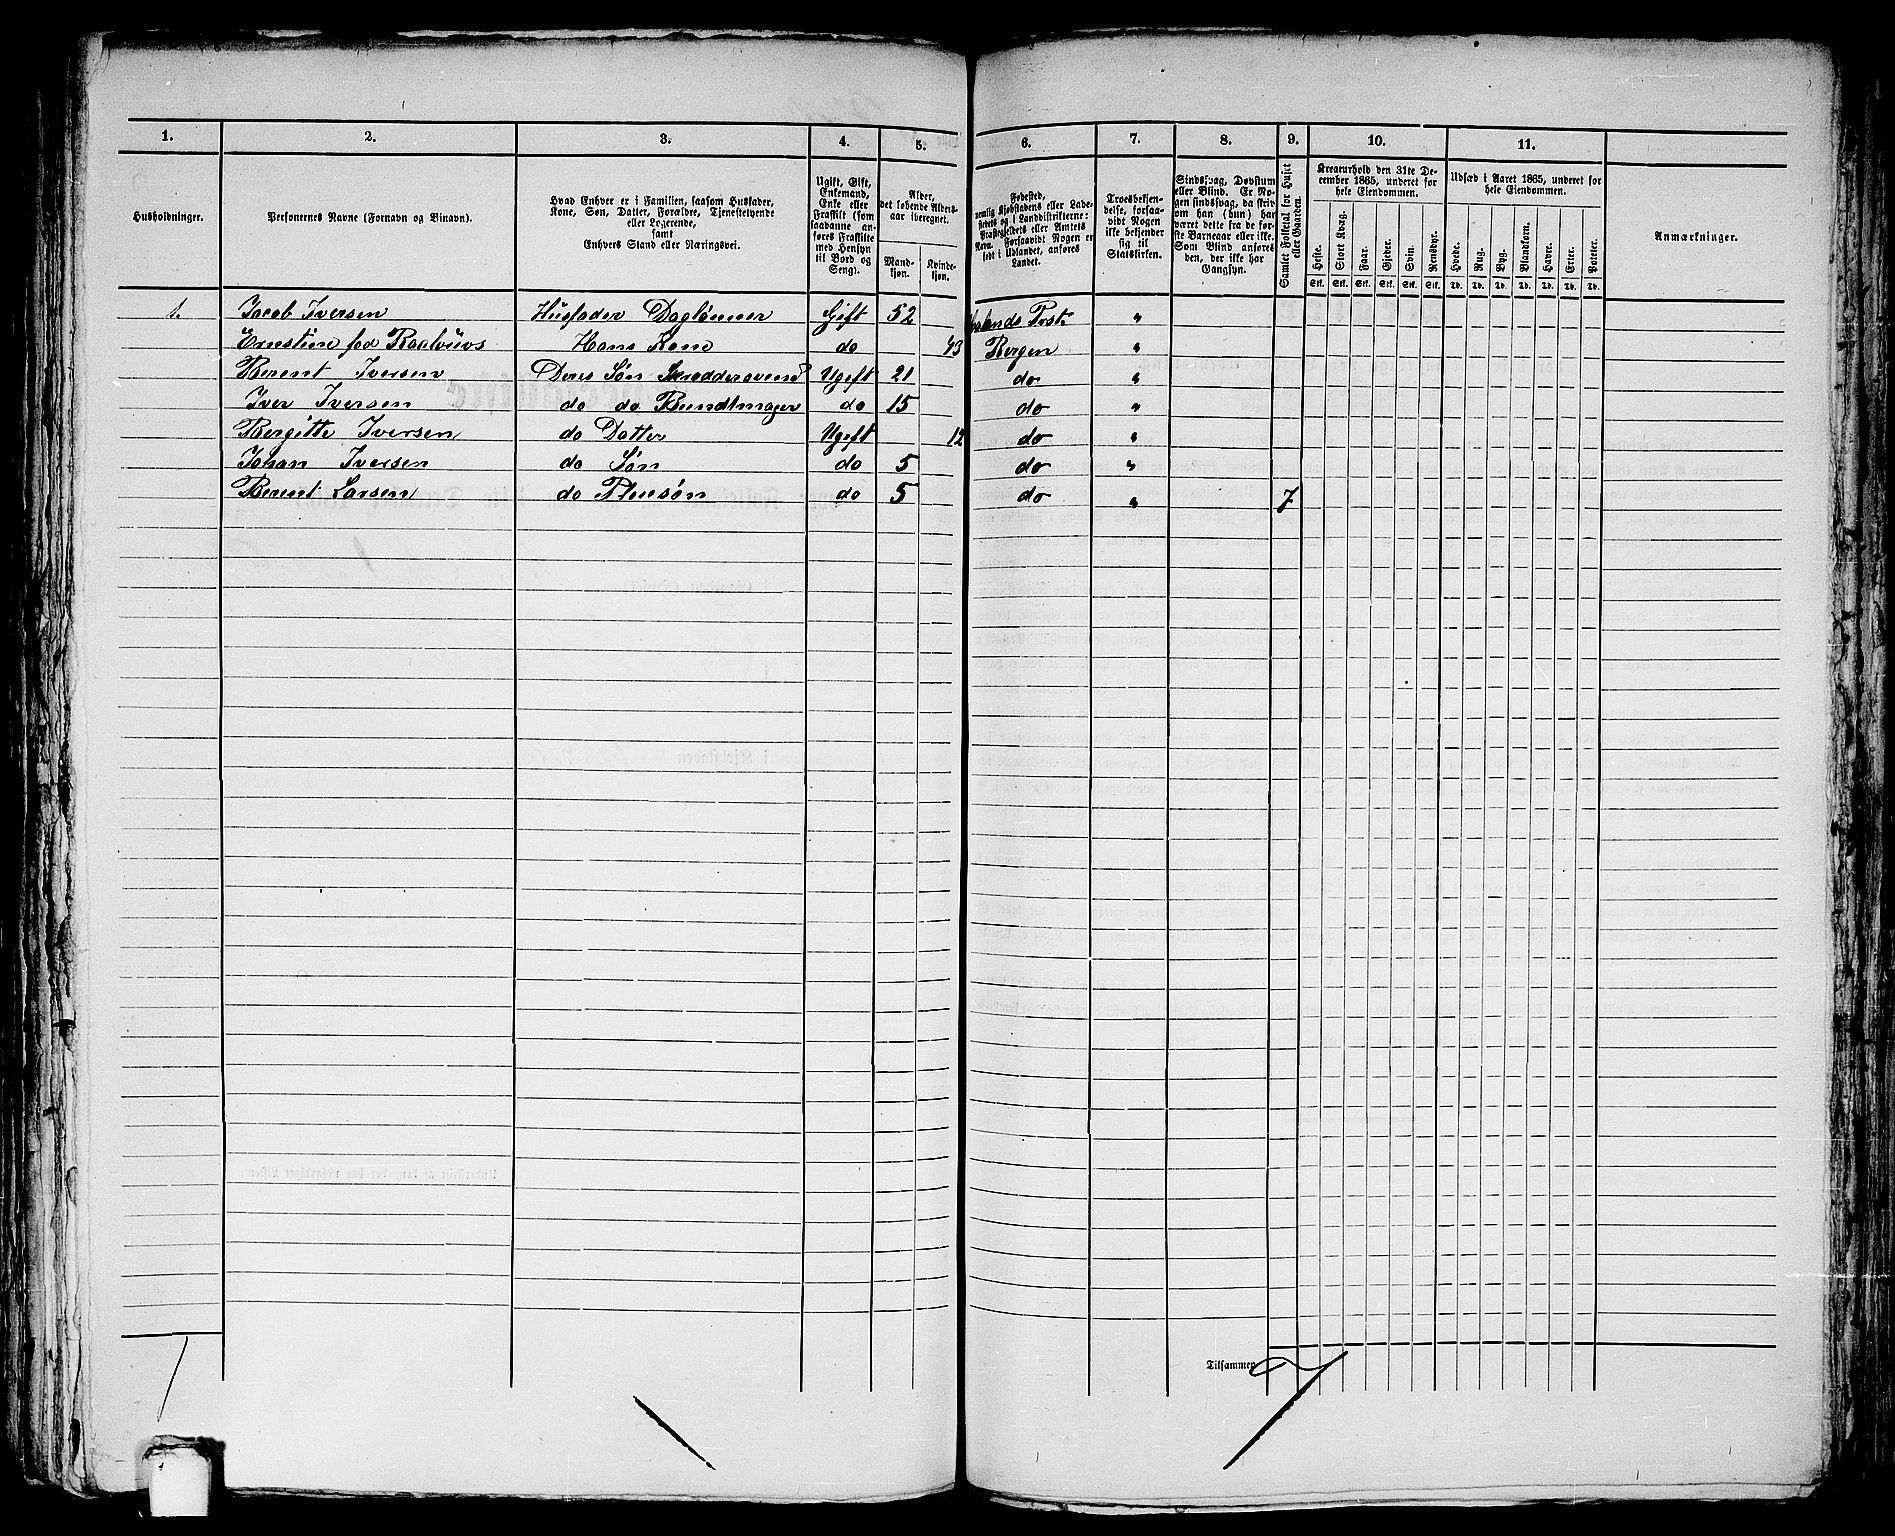 1. 2. 3. 4. 5. 6. 7. 8. 9. 10. 11.
Husholdninger.
Personernes Navne (Fornavn og Binavn).
Hvad Enhver er i Familien, saasom Husfader,
Kone, Søn, Datter, Forældre, Tjenestetyende
eller Logerende,
samt
Enhvers Stand eller Næringsvei.
Ugift, Gift,
Enkemand,
Enke eller
Fraskilt (som
saadanne an-
føres Fraskilte
med Hensyn
til Bord og
Seng).
Alder,
det løbende Alders-
aar iberegnet.
Mand-
kjøn.
Kvinde-
kjøn.
Fødested,
nemlig Kjøbstadens eller Lade-
stedets og i Landdistrikterne:
Præstegjeldets eller Amtets
Navn. Forsaavidt Nogen er
født i Udlandet, anføres
Landet.
Troesbekjen-
delse, forsaa-
vidt Nogen
ikke bekjender
sig til
Statskirken.
Sindssvag, Døvstum
eller Blind. Er No-
gen sindssvag, da skriv
om han (hun) har
været dette fra de før-
ste Barneaar eller ikke.
Som Blind anføres
den, der ikke har
Gangsyn.
Samlet Folketal for Huset
eller Gaarden.
Kreaturhold den 31te De-
cember 1865, underet for
hele Eiendommen.
Heste. Stort Kvæg. Faar. Gjeder. Svin. Rensdyr.
Stk. Stk. Stk. Stk. Stk. Stk.
Udsæd i Aaret 1865, underet for
hele Eiendommen.
Hvede. Rug. Byg. Blandkorn. Havre. Erter. Poteter.
Td. Td. Td. Td. Td. Td. Td.
Anmærkninger.
1. Jacob Iversen Husfader Daglønner Gift 52 Prst. "
Ernstine fød Hans Kone do 43 Bergen "
Berent Iversen Deres Søn Skreddersvend Ugift 21 do "
Iver Iversen do do Bundtmager do 15 do "
Bergitte Iversen do Datter Ugift 12 do "
Johan Iversen do Søn do 5 do "
Berent Larsen do Pleiesøn do 5 do " 7
Tilsammen 7